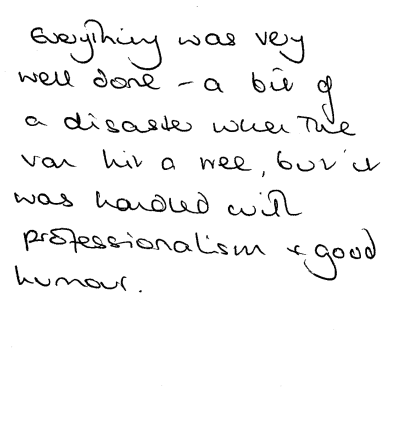 Everything was very
well done - a bit of
a disaster when the
van hit a tree, but it
was handled with
professionalism & good
humour.